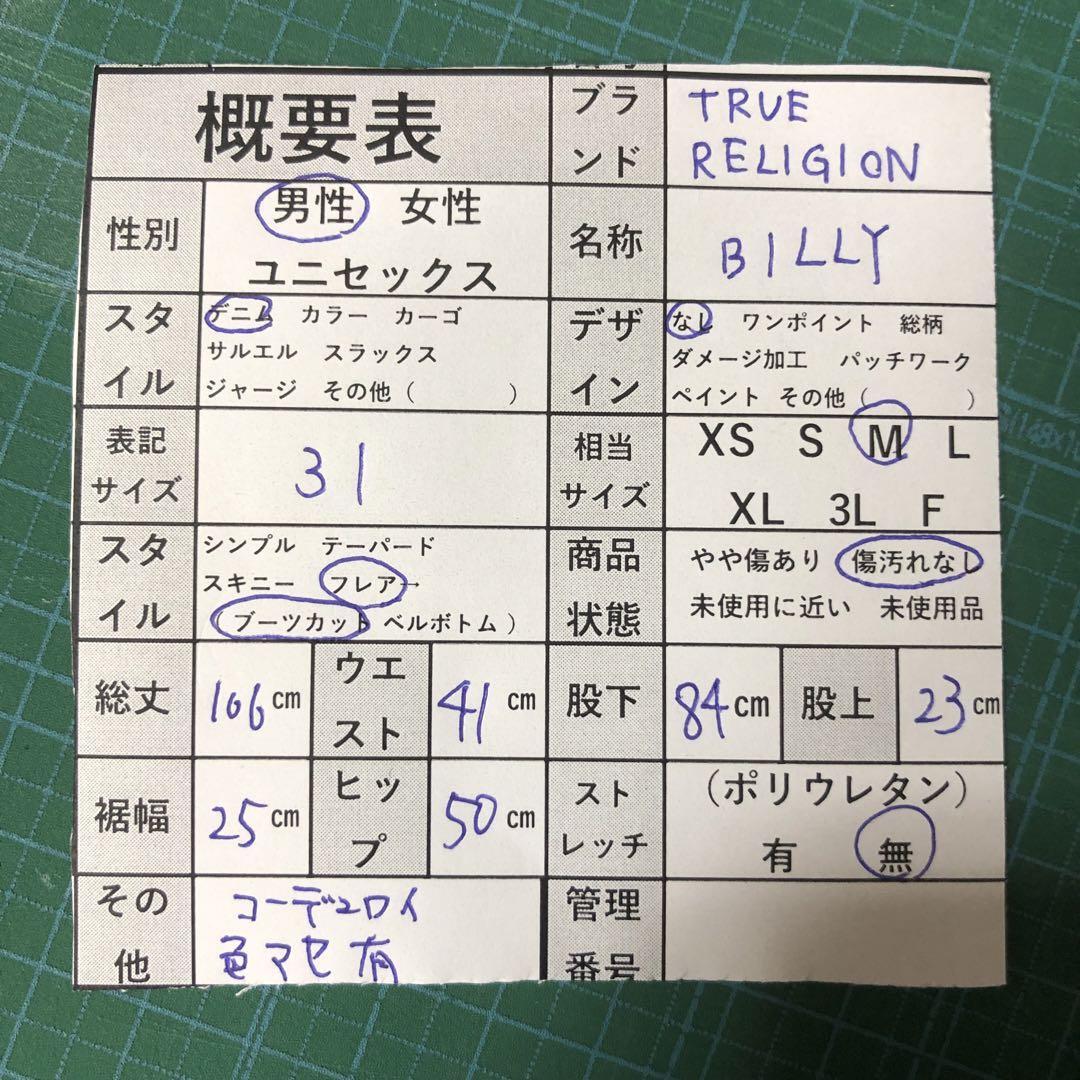 概要表
ブラ
ンド
TRUE
RELIGION
性別
男性 女性
ユニセックス
名称
BILLY
スタ
イル
デニム カラー カーゴ
サルエル スラックス
ジャージ その他（ ）
デザ
イン
なし ワンポイント 総柄
ダメージ加工 パッチワーク
ペイント その他（ ）
表記
サイズ
31
相当
サイズ
XS S M L
XL 3L F
スタ
イル
シンプル テーパード
スキニー フレア→
（ブーツカット ベルボトム）
商品
状態
やや傷あり 傷汚れなし
未使用に近い 未使用品
総丈
106cm
ウエ
スト
41cm
股下
84cm
股上
23cm
裾幅
25cm
ヒッ
プ
50cm
スト
レッチ
（ポリウレタン）
有 無
その
他
コーデュロイ
色マセ有
管理
番号